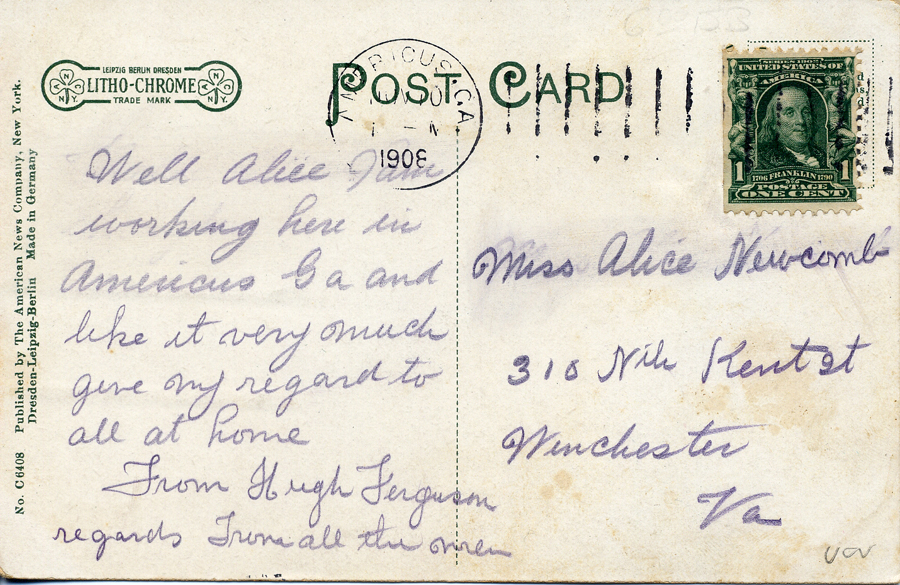 No. C6408 Published by The American News Company, New York.
Dresden-Leipzig-Berlin Made in Germany
LEIPZIG BERLIN DRESDEN
LITHO-CHROME
TRADE MARK
N N Y.
N N Y.
POST CARD
AMERICUS, GA
1908
SERIES 1902
UNITED STATES OF
AMERICA
1 1706 FRANKLIN 1790 1
POSTAGE
ONE CENT
Well Alice I am
working here in
Americus Ga and
like it very much
give my regard to
all at home
From Hugh Ferguson
regards From all the
Miss Alice Newcomb
310 Kent St
Winchester
Va